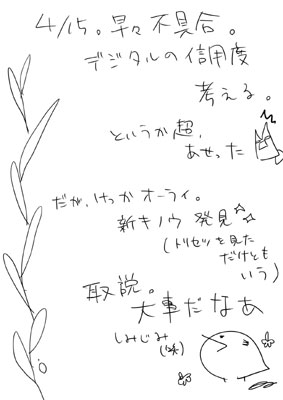 4/15。早々 不具合。
デジタルの信用度
考える。
というか超、
あせった
だが、けっかオーライ。
新キノウ 発見☆☆
(トリセツを見た
だけとも
いう)
取説。
大事だなあ
しみじみ
(笑)